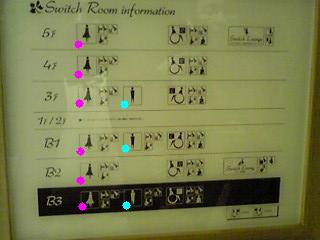 Switch Room information
5F
Switch Lounge
4F
3F
1F/2F
B1
B2
Switch Lounge
B3